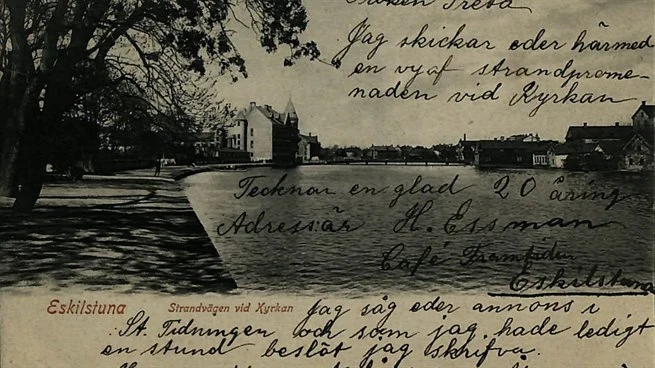 Fröken Tresa
Jag skickar eder härmed
en vy af strandprome-
naden vid Kyrkan
Tecknar en glad 20 åring
Adress:är H. Essman
Café Framtiden
Eskilstuna
Eskilstuna Strandvägen vid Kyrkan
Jag såg eder annons i
St. Tidningen och som jag hade ledigt
en stund beslöt jag skrifva.